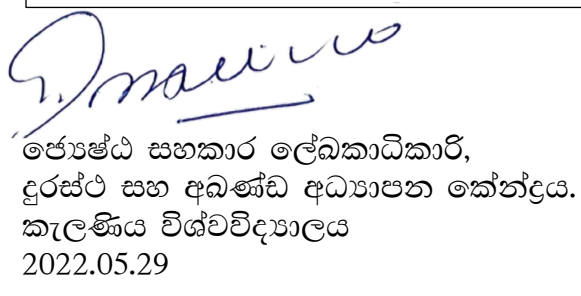 ජ්‍යෙෂ්ඨ සහකාර ලේඛකාධිකාරි,
දුරස්ථ සහ අඛණ්ඩ අධ්‍යාපන කේන්ද්‍රය.
කැලණිය විශ්වවිද්‍යාලය
2022.05.29